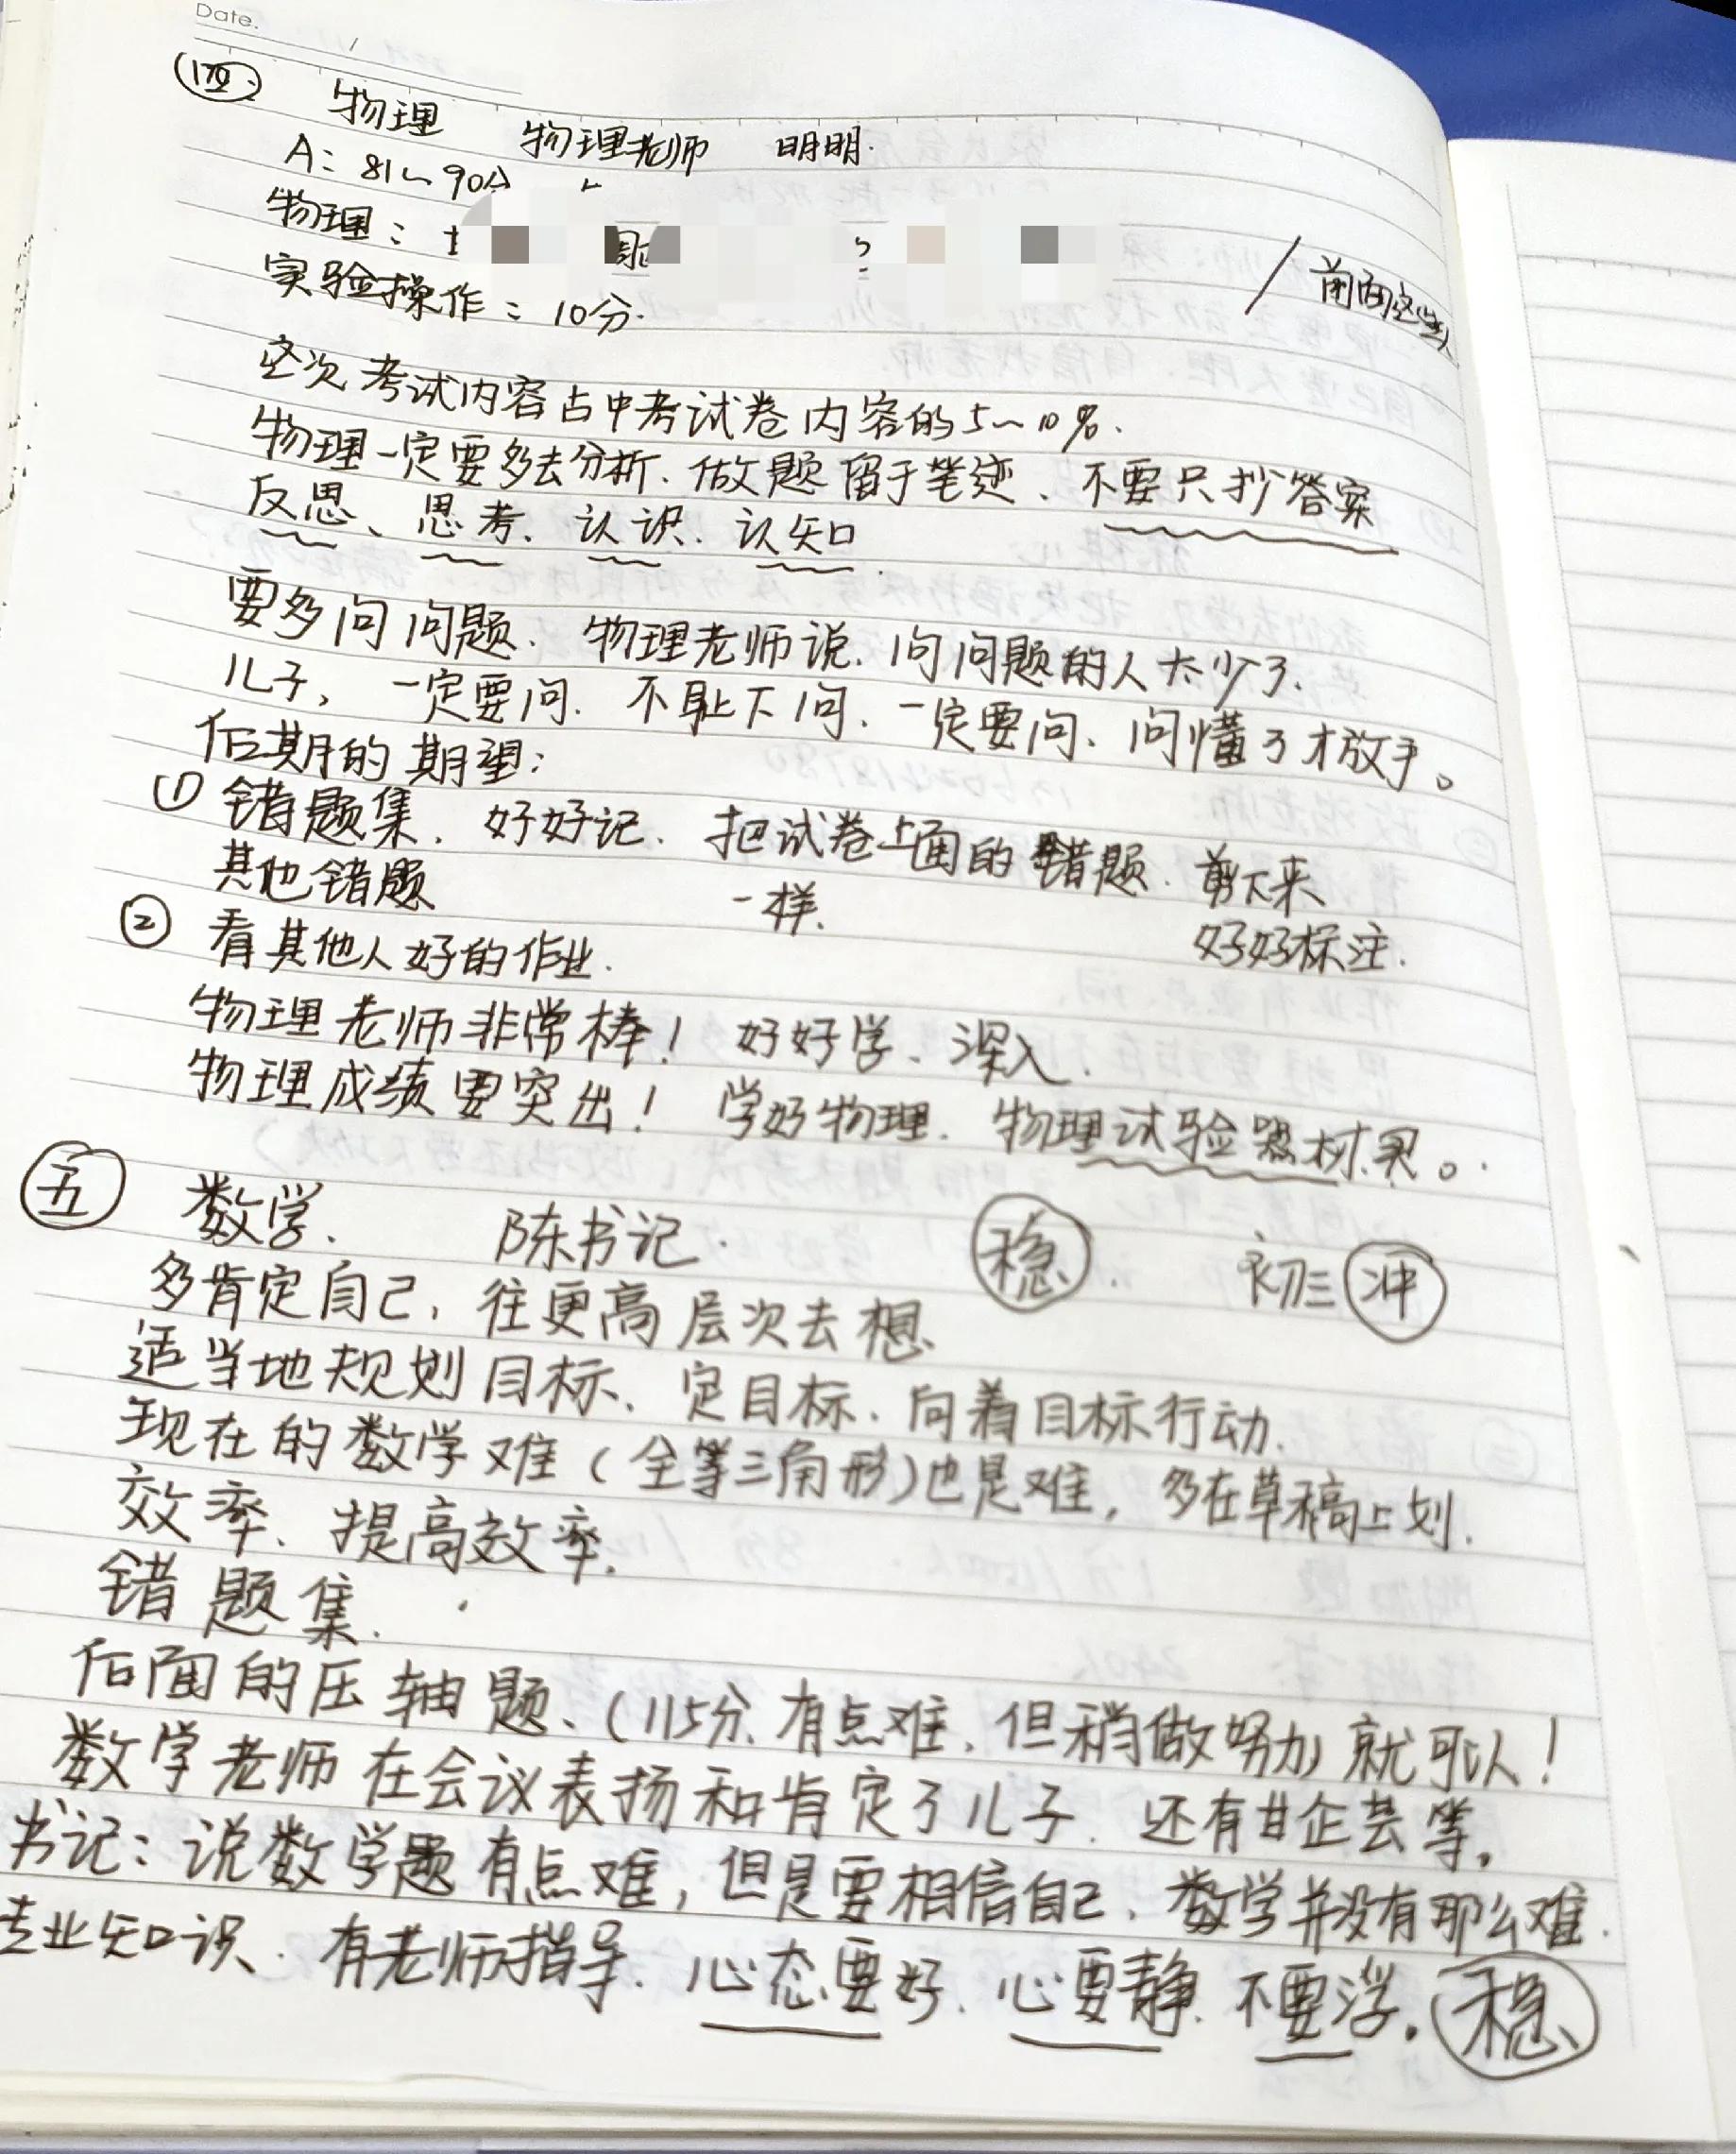 Date.
㊃ 物理 物理老师 明明.
A: 81~90分
物理:
实验操作: 10分.
/ 前面空些
这次考试内容占中考试卷内容的5~10%.
物理一定要多去分析、做题留于笔迹、不要只抄答案
反思、思考、认识、认知.
要多问问题. 物理老师说、问问题的人太少了.
儿子, 一定要问. 不耻下问、一定要问、问懂了才放手。
后期的期望:
① 错题集. 好好记. 把试卷上面的错题. 剪下来
其他错题 一样. 好好标注.
② 看其他人好的作业.
物理老师非常棒! 好好学、深入.
物理成绩要突出! 学好物理. 物理试验器材买。
㊄ 数学. 陈书记. 稳. 初三 冲
多肯定自己, 往更高层次去想.
适当地规划目标、定目标、向着目标行动.
现在的数学难(全等三角形)也是难, 多在草稿上划.
效率、提高效率.
错题集.
后面的压轴题、(115分、有点难、但稍做努力) 就可以!
数学老师在会议表扬和肯定了儿子. 还有甘企芸等。
书记: 说数学题有点难, 但是要相信自己、数学并没有那么难.
专业知识. 有老师指导. 心态要好、心要静、不要浮。稳